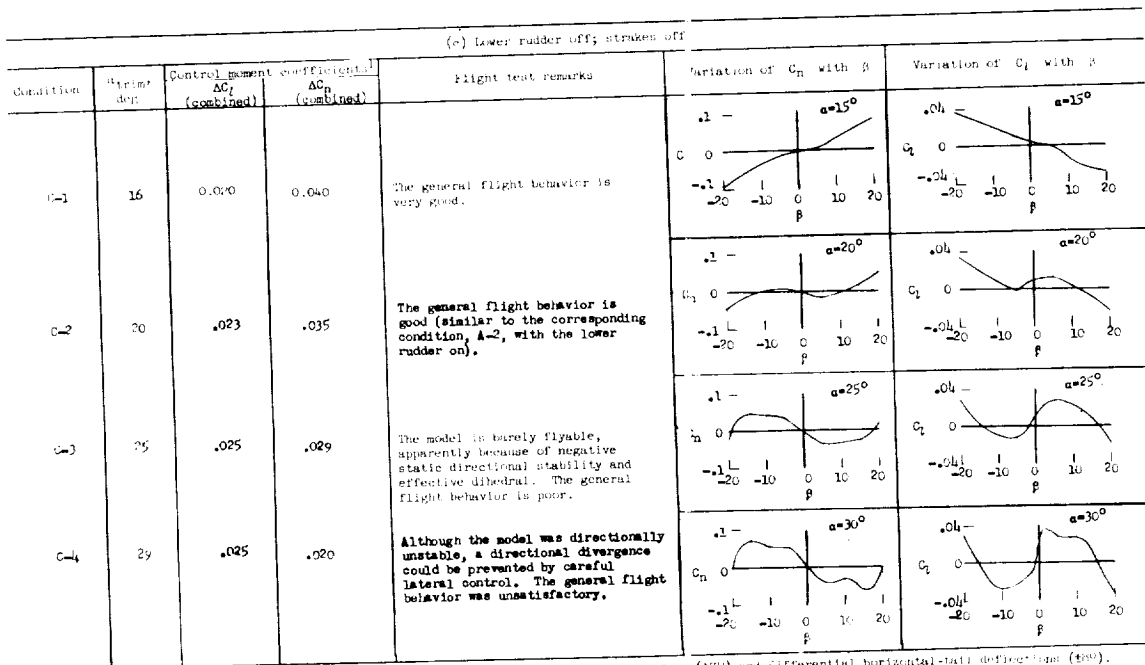 (c) Lower rudder off; strakes off
Condition
αtrim, deg
Control moment coefficients
ΔCl (combined)
ΔCn (combined)
Flight test remarks
Variation of Cn with β
Variation of Cl with β
C-1
16
0.020
0.040
The general flight behavior is
very good.
.1
α=15°
C 0
-.1
-20 -10 0 10 20
β
.04
α=15°
Cl 0
-.04
-20 -10 0 10 20
β
C-2
20
.023
.035
The general flight behavior is
good (similar to the corresponding
condition, A-2, with the lower
rudder on).
.1
α=20°
Cn 0
-.1
-20 -10 0 10 20
β
.04
α=20°
Cl 0
-.04
-20 -10 0 10 20
β
C-3
25
.025
.029
The model is barely flyable,
apparently because of negative
static directional stability and
effective dihedral. The general
flight behavior is poor.
.1
α=25°
n 0
-.1
-20 -10 0 10 20
β
.04
α=25°
Cl 0
-.04
-20 -10 0 10 20
β
C-4
29
.025
.020
Although the model was directionally
unstable, a directional divergence
could be prevented by careful
lateral control. The general flight
behavior was unsatisfactory.
.1
α=30°
Cn 0
-.1
-20 -10 0 10 20
β
.04
α=30°
Cl 0
-.04
-20 -10 0 10 20
β
differential horizontal-tail deflections